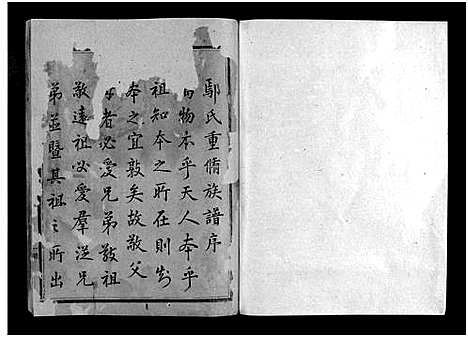 鄢氏重脩族譜序
曰物本乎天人本乎
祖知本之所在則知
本之宜敦矣故敬父
母者必愛兄弟敬祖
敬遠祖必愛羣從兄
弟並暨其祖之所出